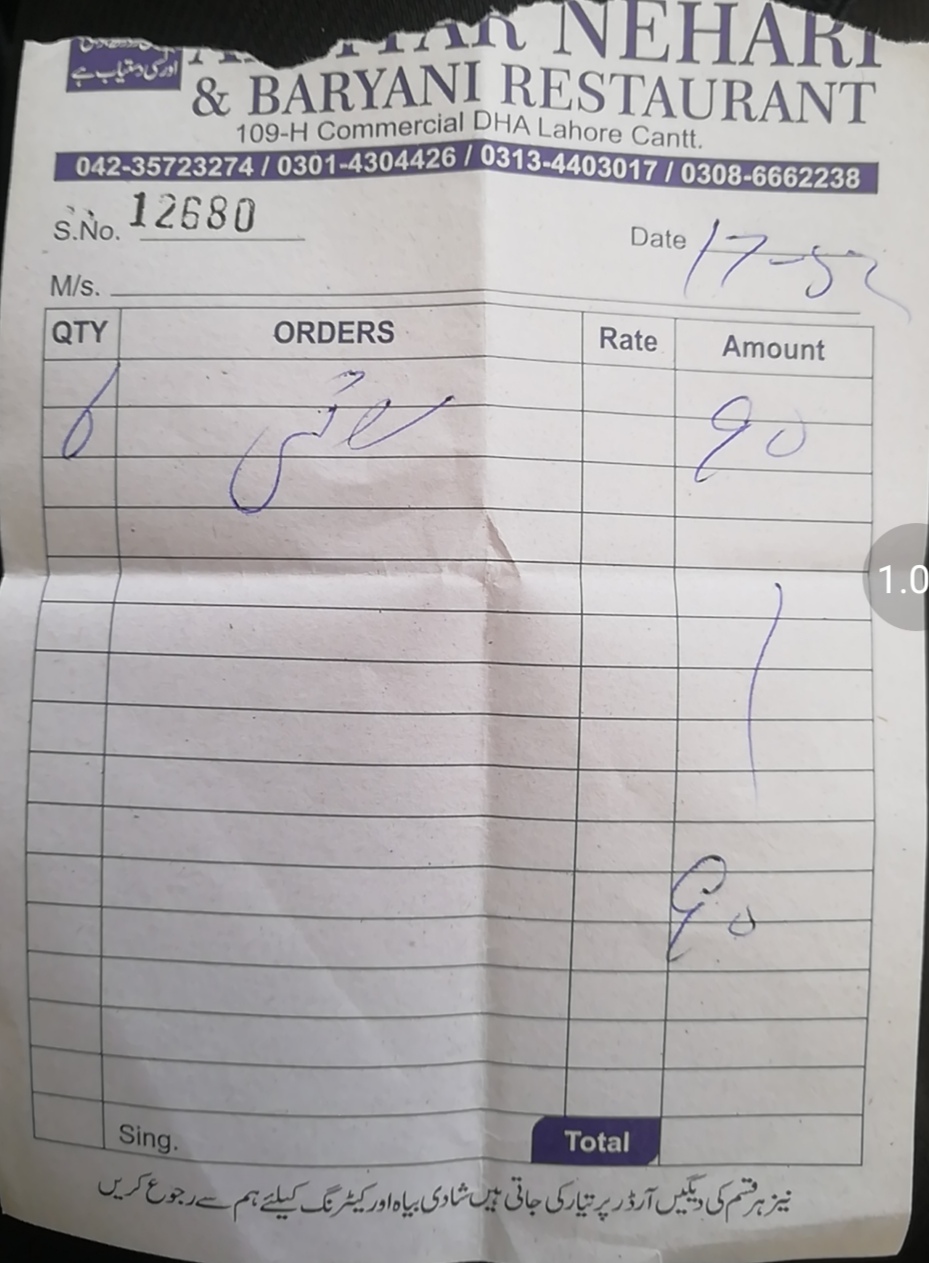 اور لسی دستیاب ہے
NEHARI
& BARYANI RESTAURANT
109-H Commercial DHA Lahore Cantt.
042-35723274 / 0301-4304426 / 0313-4403017 / 0308-6662238
S.No. 12680
Date 17-5
M/s.
QTY ORDERS Rate Amount
6 90
90
Sing. Total
نیز ہر قسم کی دیگیں آرڈر پر تیار کی جاتی ہیں شادی بیاہ اور کیٹرنگ کیلئے ہم سے رجوع کریں
1.0